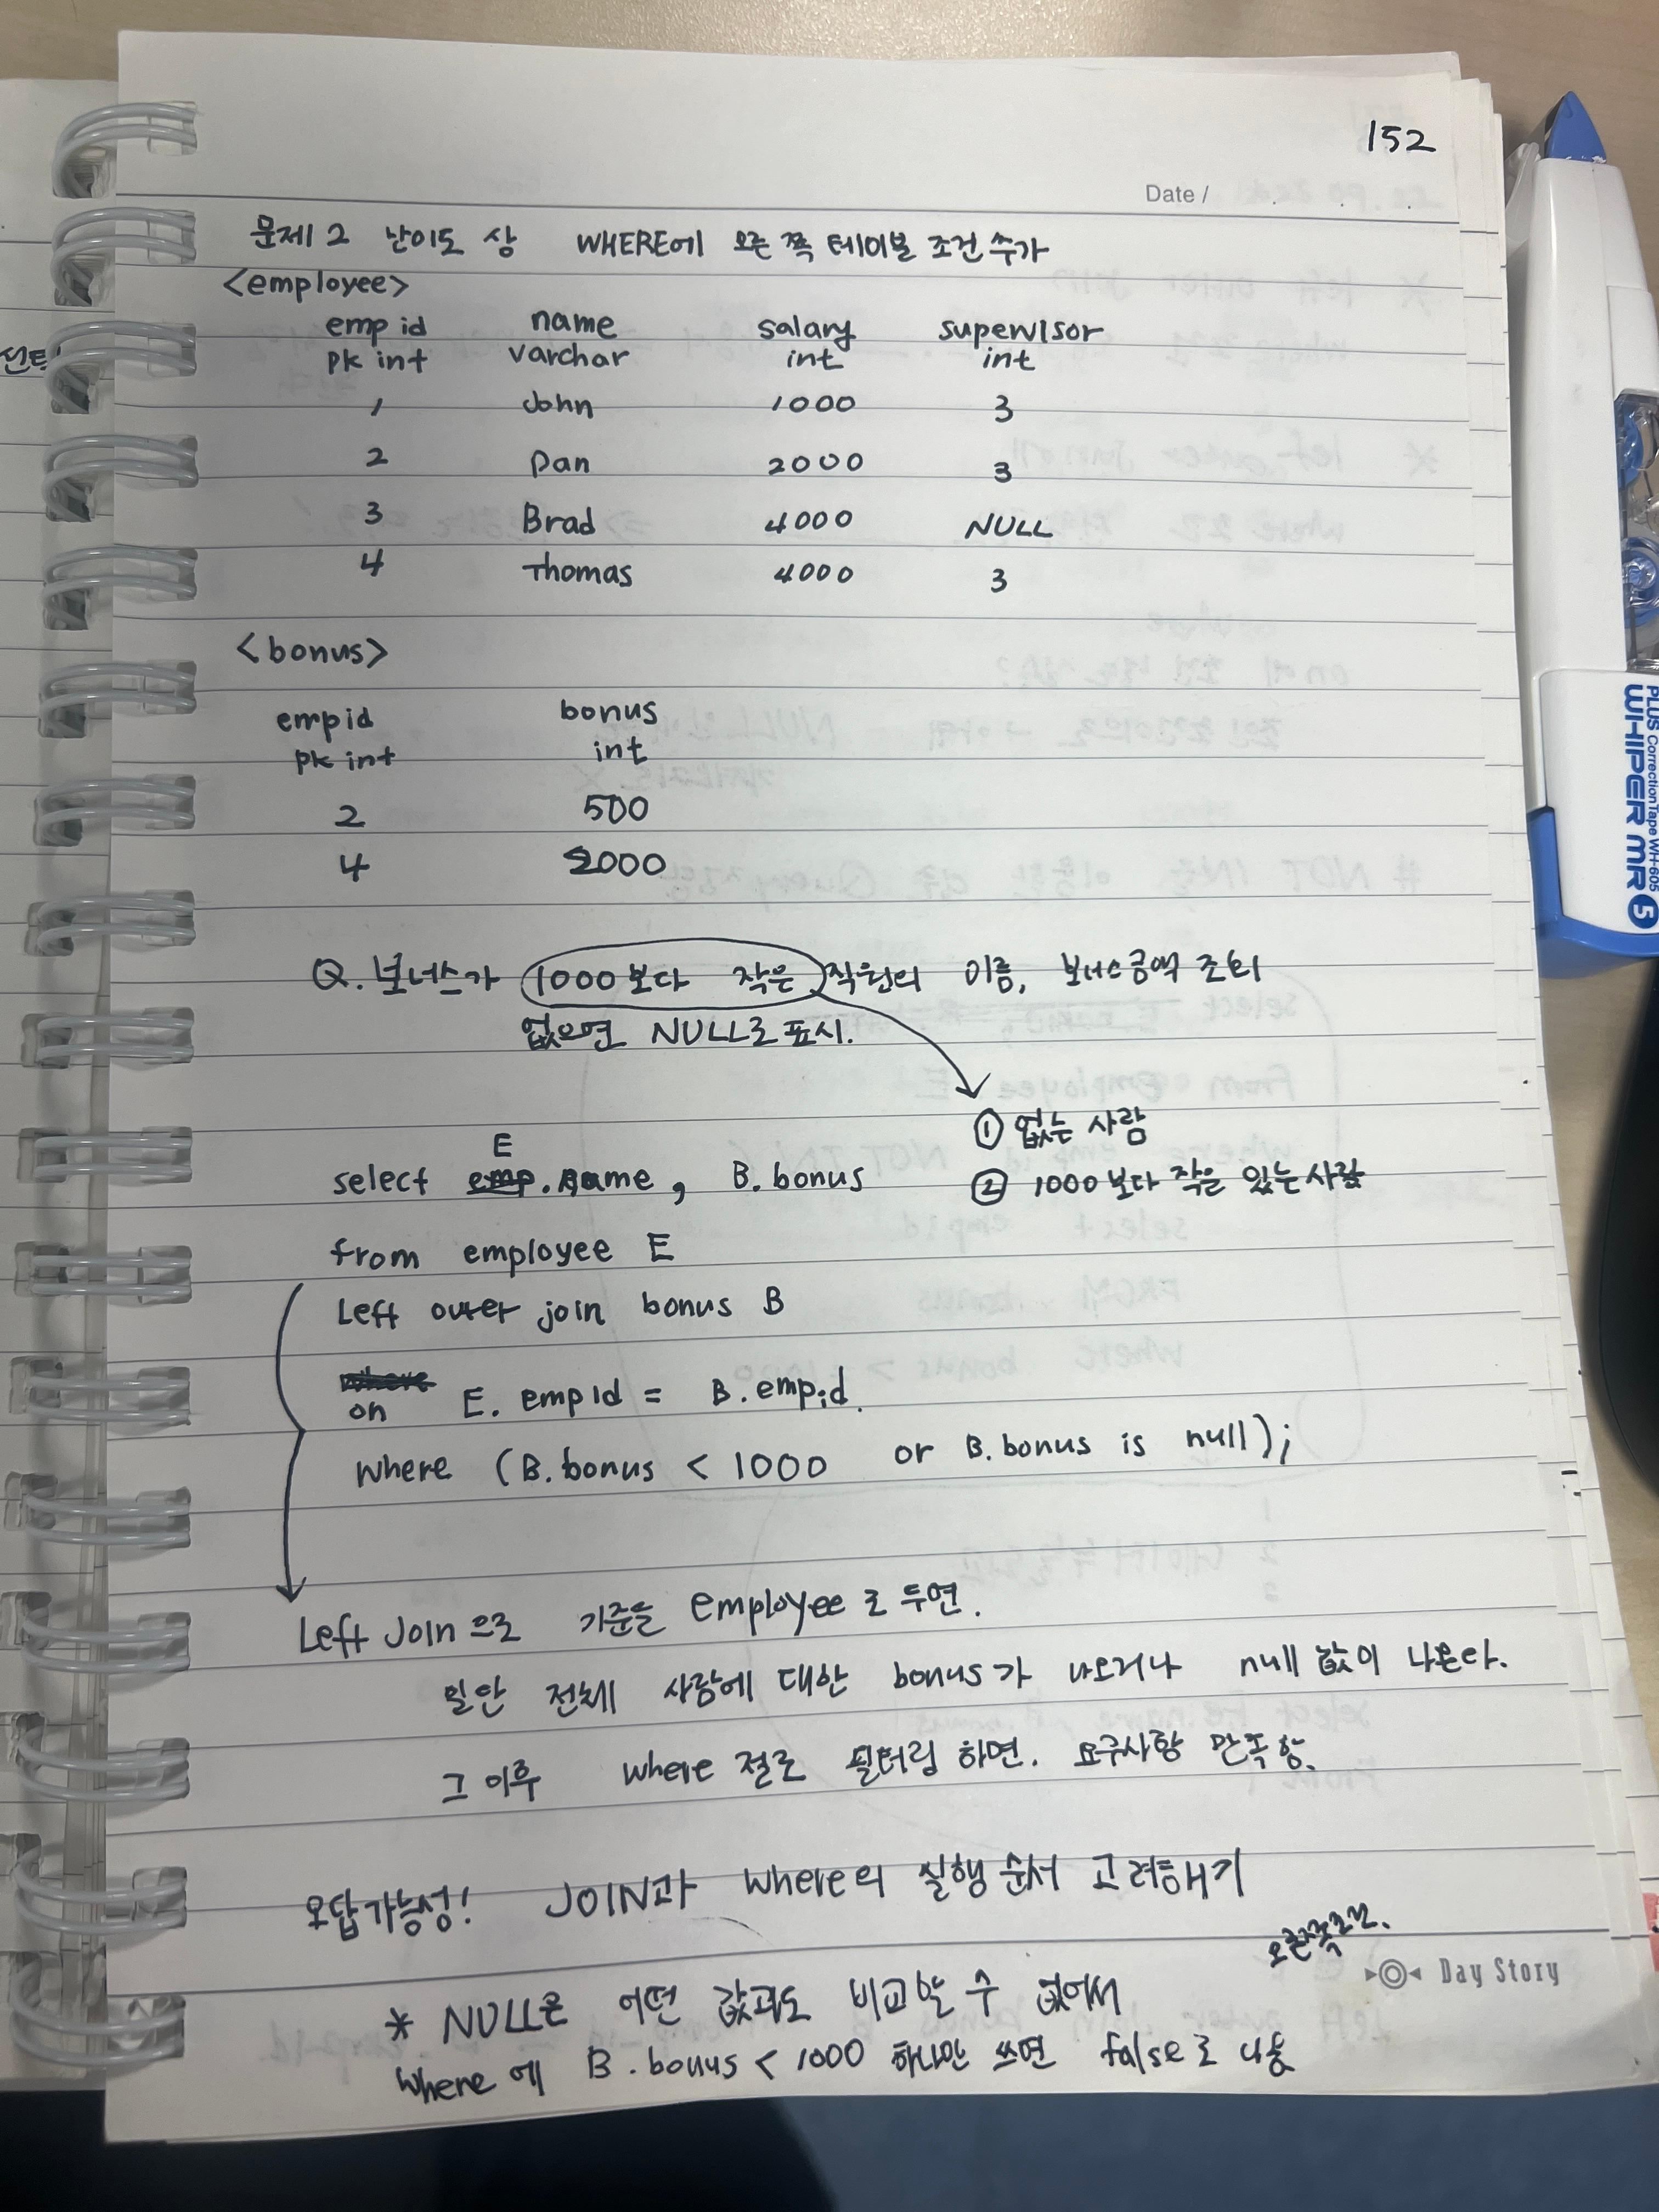 152
Date /
문제 2 난이도 상 WHERE에 오른쪽 테이블 조건 추가
<employee>
emp id name salary supervisor
pk int varchar int int
1 John 1000 3
2 Dan 2000 3
3 Brad 4000 NULL
4 Thomas 4000 3
<bonus>
empid bonus
pk int int
2 500
4 2000
Q. 보너스가 1000보다 작은 직원의 이름, 보너스금액 조회
없으면 NULL로 표시.
① 없는 사람
② 1000보다 작은 있는 사람
E
select emp.name, B.bonus
from employee E
Left outer join bonus B
where
on E.empId = B.empid.
where (B.bonus < 1000 or B.bonus is null);
Left Join 으로 기준을 employee로 두면.
일단 전체 사람에 대한 bonus가 나오거나 null 값이 나온다.
그 이후 where 절로 필터링 하면. 요구사항 만족함.
오답가능성! JOIN과 where의 실행 순서 고려하기
오른쪽조건.
Day Story
* NULL은 어떤 값과도 비교할 수 없어서
where 에 B.bonus < 1000 하나만 쓰면 false로 나옴
선택
PLUS Correction Tape WH-605
WHIPER MR 5